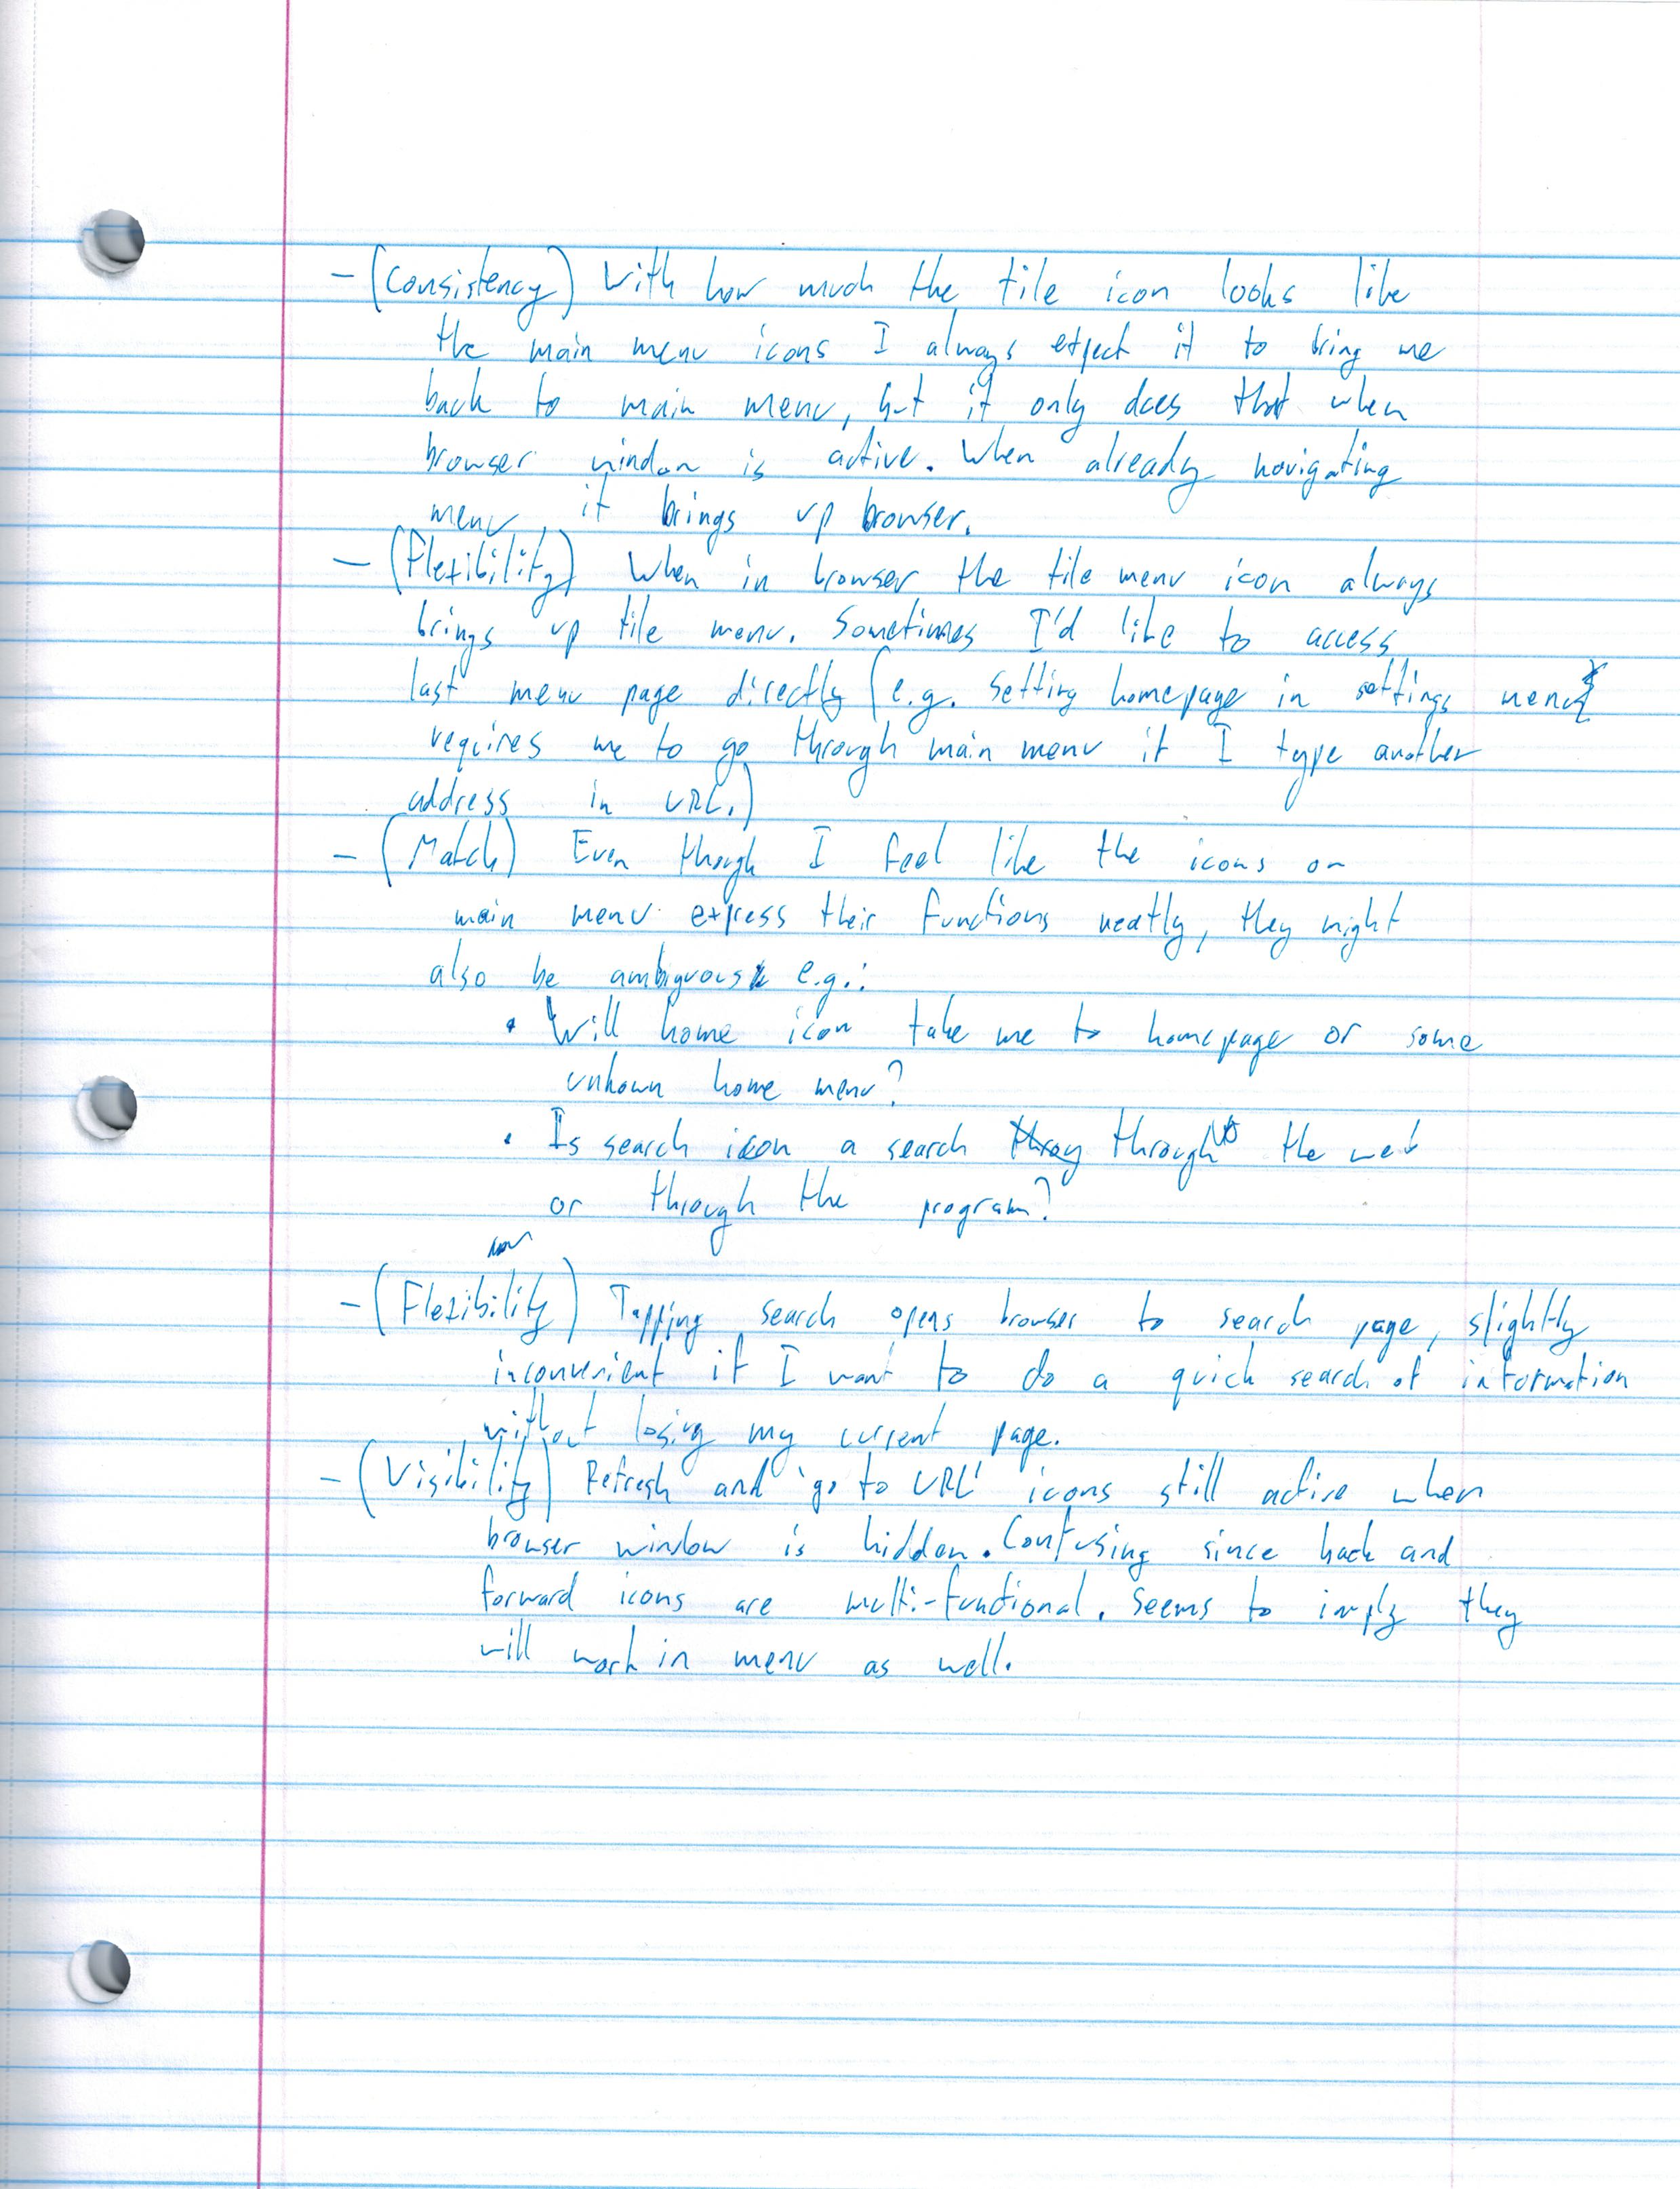 - (Consistency) With how much the tile icon looks like
the main menu icons I always expect it to bring me
back to main menu, but it only does that when
browser window is active. When already navigating
menu, it brings up browser.
- (Flexibility) When in browser the tile menu icon always
brings up tile menu. Sometimes I'd like to access
last menu page directly (e.g. setting homepage in settings menu
requires me to go through main menu if I type another
address in URL.)
- (Match) Even though I feel like the icons on
main menu express their functions neatly, they might
also be ambiguous e.g.:
• Will home icon take me to homepage or some
unkown home menu?
• Is search icon a search through the web
or through the program?
- (Flexibility) Tapping search opens browser to search page, slightly
inconvenient if I want to do a quick search of information
without losing my current page.
- (Visibility) Refresh and 'go to URL' icons still active when
browser window is hidden. Confusing since back and
forward icons are multi-functional. Seems to imply they
will work in menu as well.